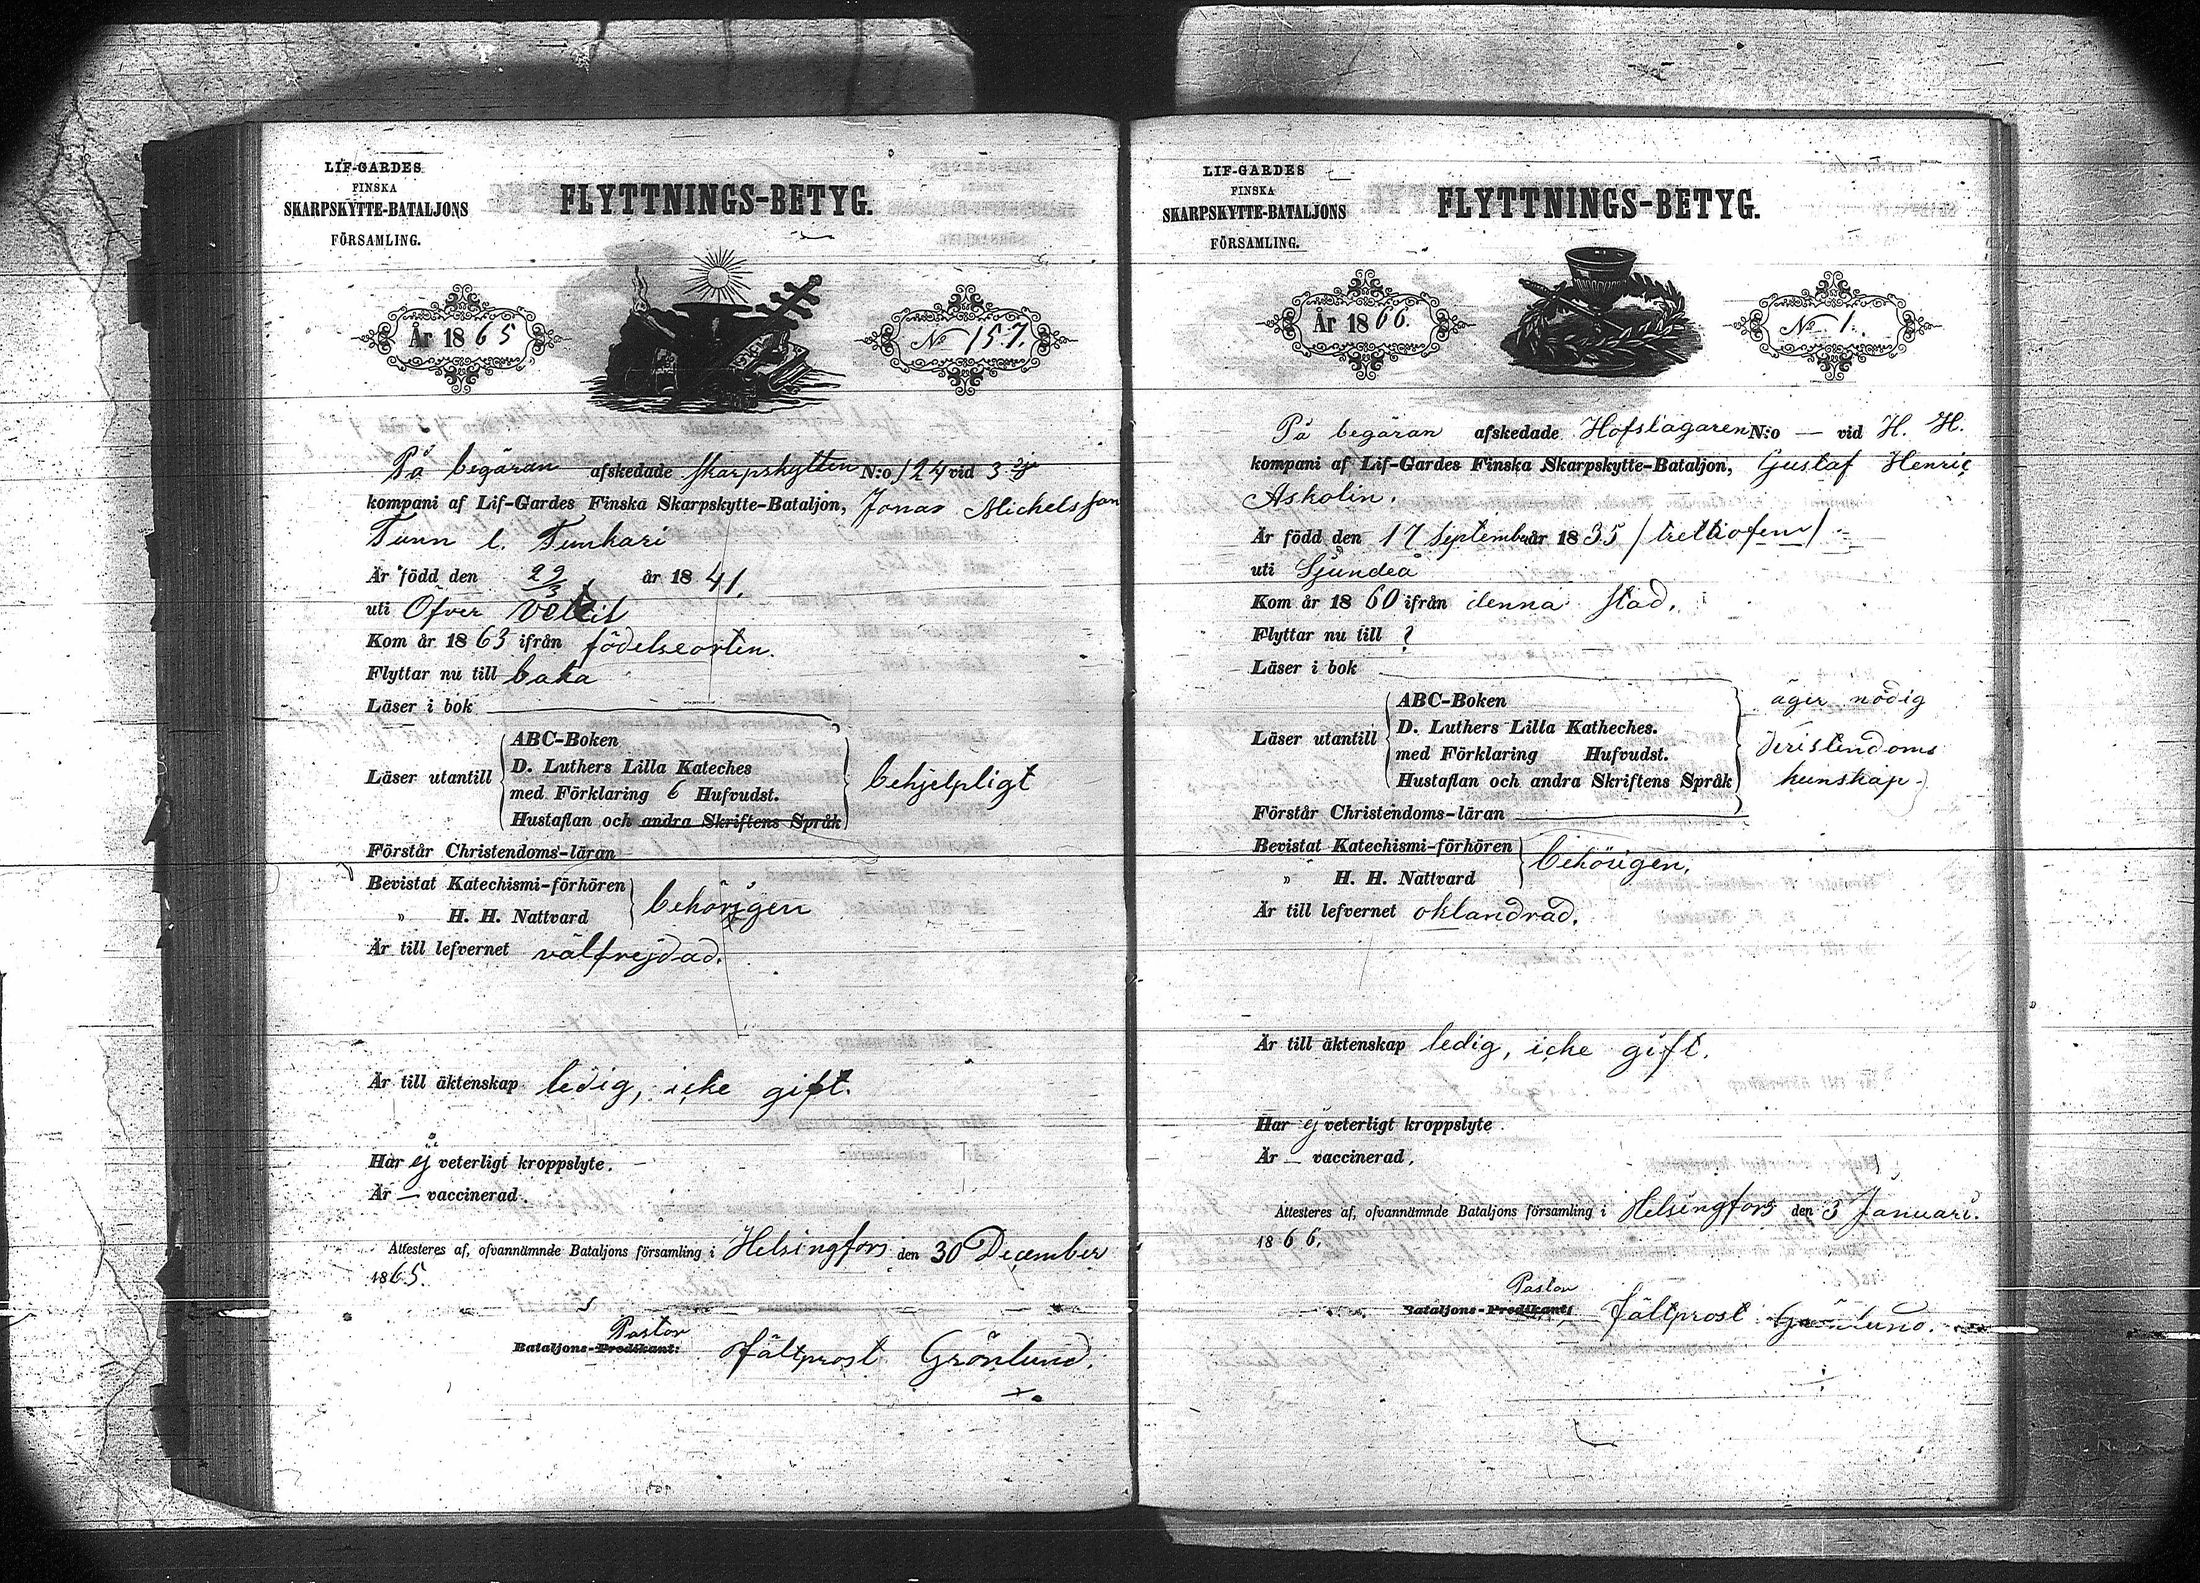 LIF-GARDES
FINSKA
SKARPSKYTTE-BATALJONS
FÖRSAMLING.
FLYTTNINGS-BETYG.
År 1865
No 157.
På begäran afskedade skarpskytten N:o 124 vid 3 dje
kompani af Lif-Gardes Finska Skarpskytte-Bataljon, Jonas Michelsson
Tunn l. Tunkari
Är född den 29/3 år 1841,
uti Öfver Vetil
Kom år 1863 ifrån födelseorten.
Flyttar nu till baka
Läser i bok
Läser utantill
ABC-Boken
D. Luthers Lilla Kateches
med Förklaring 6 Hufvudst.
Hustaflan och andra Skriftens Språk
behjelpligt
Förstår Christendoms-läran
Bevistat Katechismi-förhören
" H. H. Nattvard
behörigen
Är till lefvernet välfrejdad.
Är till äktenskap ledig, icke gift.
Har ej veterligt kroppslyte.
Är — vaccinerad.
Attesteres af, ofvannämnde Bataljons församling i Helsingfors den 30 December
1865.
Pastor
Bataljons-Predikant: Fältprost Grönlund.
LIF-GARDES
FINSKA
SKARPSKYTTE-BATALJONS
FÖRSAMLING.
FLYTTNINGS-BETYG.
År 1866.
No 1.
På begäran afskedade Hofslagaren N:o — vid H. H.
kompani af Lif-Gardes Finska Skarpskytte-Bataljon, Gustaf Henric
Askolin.
Är född den 17 September år 1835 /trettiofem/
uti Sjundeå
Kom år 1860 ifrån denna stad.
Flyttar nu till ?
Läser i bok
Läser utantill
ABC-Boken
D. Luthers Lilla Katheches.
med Förklaring Hufvudst.
Hustaflan och andra Skriftens Språk
äger nödig
Kristendoms
kunskap.
Förstår Christendoms-läran
Bevistat Katechismi-förhören
" H. H. Nattvard
behörigen.
Är till lefvernet oklandrad.
Är till äktenskap ledig, icke gift.
Har ej veterligt kroppslyte.
Är — vaccinerad.
Attesteres af, ofvannämnde Bataljons församling i Helsingfors den 3 Januari.
1866.
Pastor
Bataljons-Predikant: Fältprost Grönlund.